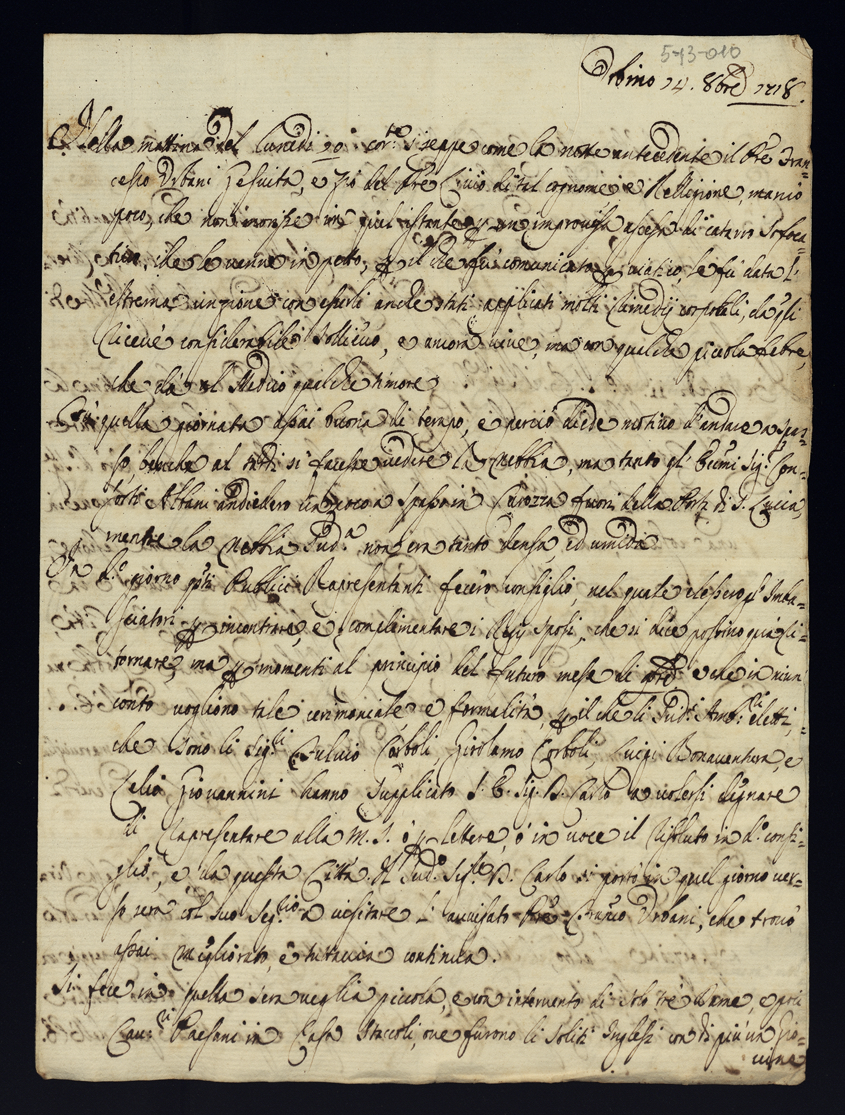 5-13-010
Urbino 14. 8bre 1718.
Nella mattina del Lunedì 10. corte si seppe come la notte antecedente il Pre Fran=
cesco Urbani Gesuita, e Zio del Pre Livio di tal cognome e Religione, mancò
poco, che non morisse in quel istante p un improvisa ascesa di catarro sofoca=
tivo, che le venne in petto, p il che fu comunicato p viatico, le fu data l'
estrema unzione con esserli anche stati applicati molti rimedij corporali, da gli
ricevè considerabile sollievo, e ancora vive, ma con qualche piccola febre,
che dà al Medico qualche timore.
Fù quella giornata assai buona di tempo, e perciò diede motivo d'andare a spas=
so benche al tardi si facesse vedere la Nebbia, ma tanto gl' Eccmi Sigri Con=
sorti Albani andiedero un poco a spasso in Carozza fuori della Porta di S. Lucia,
mentre la Nebbia suda non era tanto densa, ed umida.
In do giorno psti Publici Rapresentanti fecero consiglio, nel quale elessero gl' Imba=
sciatori p incontrare, e complimentare i Regj Sposi, che si dice possino quà ri=
tornare, ma p momenti al principio del futuro mese di 9bre e che in niun
conto vogliono tale cerimoniale e formalità, p il che li sudi Ambri eletti,
che sono li Sigli Fulvio Corboli, Girolamo Corboli, Luigi Bonaventura, e
Celio Giovannini hanno supplicato S. E. Sig. D. Carlo a volersi degnare
di rapresentare alla M. S. ò p lettere, ò in voce il risoluto in do consi=
glio, e da questa Città. Il sudo Sigre D. Carlo si portò in quel giorno ver=
so sera col suo Segrio a visitare l' avvisato Pre Franco Urbani, che trovò
assai migliorato, e tuttavia continua.
Si fece in quella sera veglia piccola, e con intervento di solo trè Dame, e pochi
Cavri Paesani in Casa Staccoli, ove furono li soliti Inglesi con di più un Gio=
vine